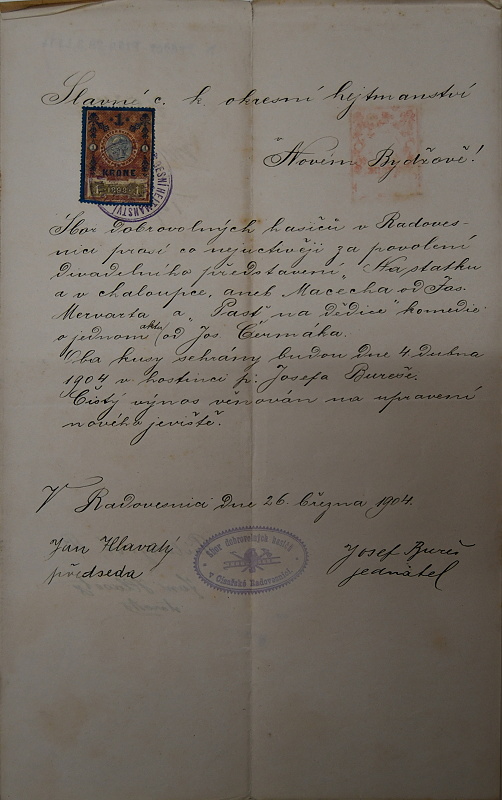 Slavné c. k. okresní hejtmanství
v
Novém Bydžově!
1
KRONE
1 1898 1
OKRESNÍ HEJTMANSTVÍ
Sbor dobrovolných hasičů v Radoves-
nici prosí co nejuctivěji za povolení
divadelního představení „Na statku
a v chaloupce, aneb Macecha od Jos.
Mervarta a „Past" na dědice" komedie
o jednom aktu od Jos. Čermáka.
Oba kusy sehrány budou dne 4. dubna
1904 v hostinci p. Josefa Bureše.
Čistý výnos věnován na upravení
nového jeviště.
V Radovesnici dne 26. března 1904.
Jan Hlavatý
předseda
Sbor dobrovolných hasičů
v Radovesnici
Josef Bureš
jednatel